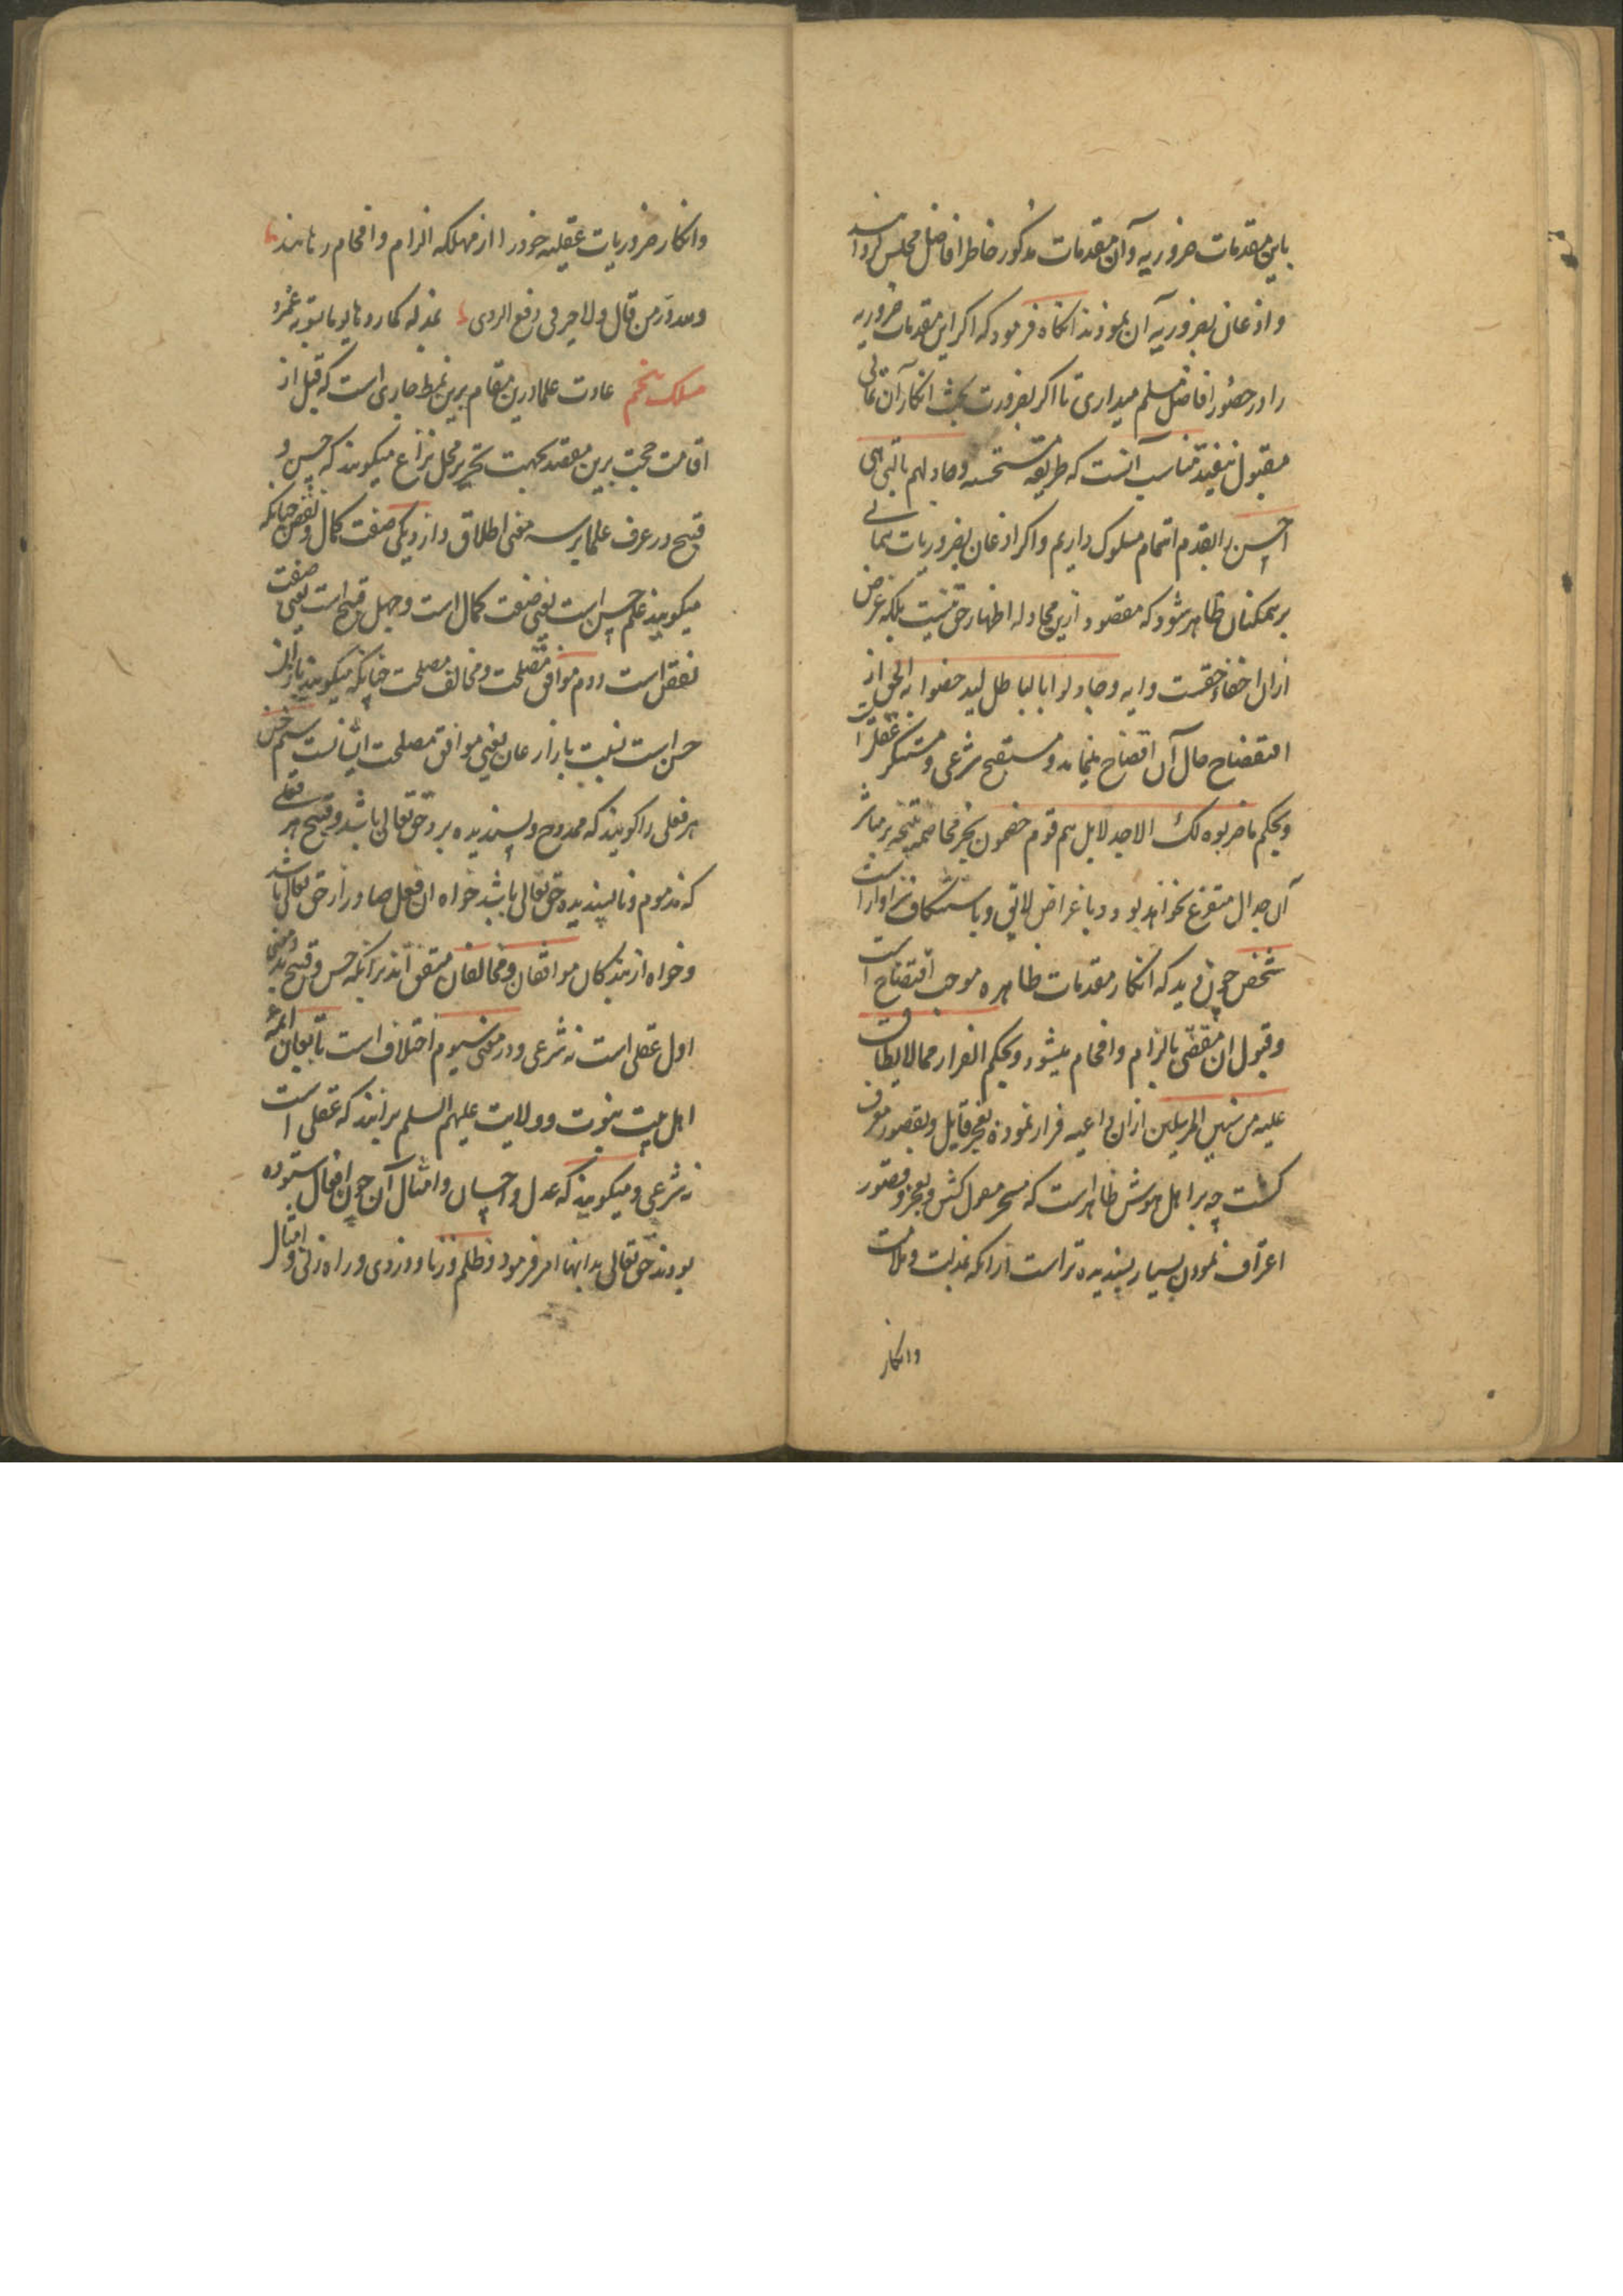 باین مقدمات ضروریه و آن مقدمات مذکور خاطر افاضل مجلس کردانید
و اذعان بضروریه آن نمودند انکاه فرمود که اکر این مقدمات ضروریه
را در حضور افاضل مسلم میداری تا اکر بضرورت بحث انکار آن نمائی
مقبول نیفتد مناسب آنست که طریقه مستحسنه وجادلهم بالتی هی
احسن را بقدم اتمام مسلوک داریم و اکر اذعان بضروریات ننمائی
بر همکنان ظاهر شود که مقصود ازین مجادله اظهار حق نیست بلکه غرض
ازان اخفاء حقست و آیه وجادلوا بالباطل لیدحضوا به الحق از
افتضاح حال آن افصاح مینماید و مستقبح شرعی و مستنکر عقلی است
وبحکم ماضربوه لک الاجدلا بل هم قوم خصمون بجز مخاصمه نتیجه بر مباشر
آن جدال متفرع نخواهد بود و باغراض لایق و باستنکاف سزاوار است
شخص چون دید که انکار مقدمات ظاهره موجب افتضاح است
وقبول ان مفضی بالزام و افحام میشود وبحکم الفرار مما لایطاق
علیه من سنن المرسلین ازان داعیه فرار نموده بعجز قایل وبقصور معترف
کشت چه بر اهل هوش ظاهر است که بعجز وقصور
اعتراف نمودن بسیار پسندیده تر است ازانکه بمذلت و ملامت
وانکار
وانکار ضروریات عقلیه خود را از مهلکه الزام و افحام رهانند
ولله در من قال ولاجر فی دفع الردی بمذله کما ردها یوما بسوءته عمرو
مسلک پنجم عادت علما درین مقام برین نمط جاری است که قبل از
اقامت حجت برین مقصد بجهت تحریر محل نزاع میکویند که حسن و
قبح در عرف علما بر سه معنی اطلاق دارد یکی صفت کمال و نقص چنانکه
میکویند علم حسن است یعنی صفت کمال است وجهل قبیح است یعنی صفت
نقص است دوم موافق مصلحت و مخالف مصلحت چنانکه میکویند
حسن است نسبت بازارعان یعنی موافق مصلحت ایشانست سیم حسن
هر فعلی را کویند که ممدوح و پسندیده بر و حق تعالی باشد و قبیح هر فعلی
که مذموم و ناپسندیده حق تعالی باشد خواه ان فعل صادر از حق تعالی باشد
و خواه از بندکان موافقان و مخالفان متفق اند بر آنکه حسن و قبح بدو معنی
اول عقلی است نه شرعی و در معنی سیوم اختلاف است تابعان ائمه
اهل بیت نبوت و ولایت علیهم السلم برانند که عقلی است
نه شرعی و میکویند که عدل و احسان و امثال آن چون افعال ستوده
بودند حق تعالی بدانها امر فرمود و ظلم و زنا و دزدی و راه زنی و امثال